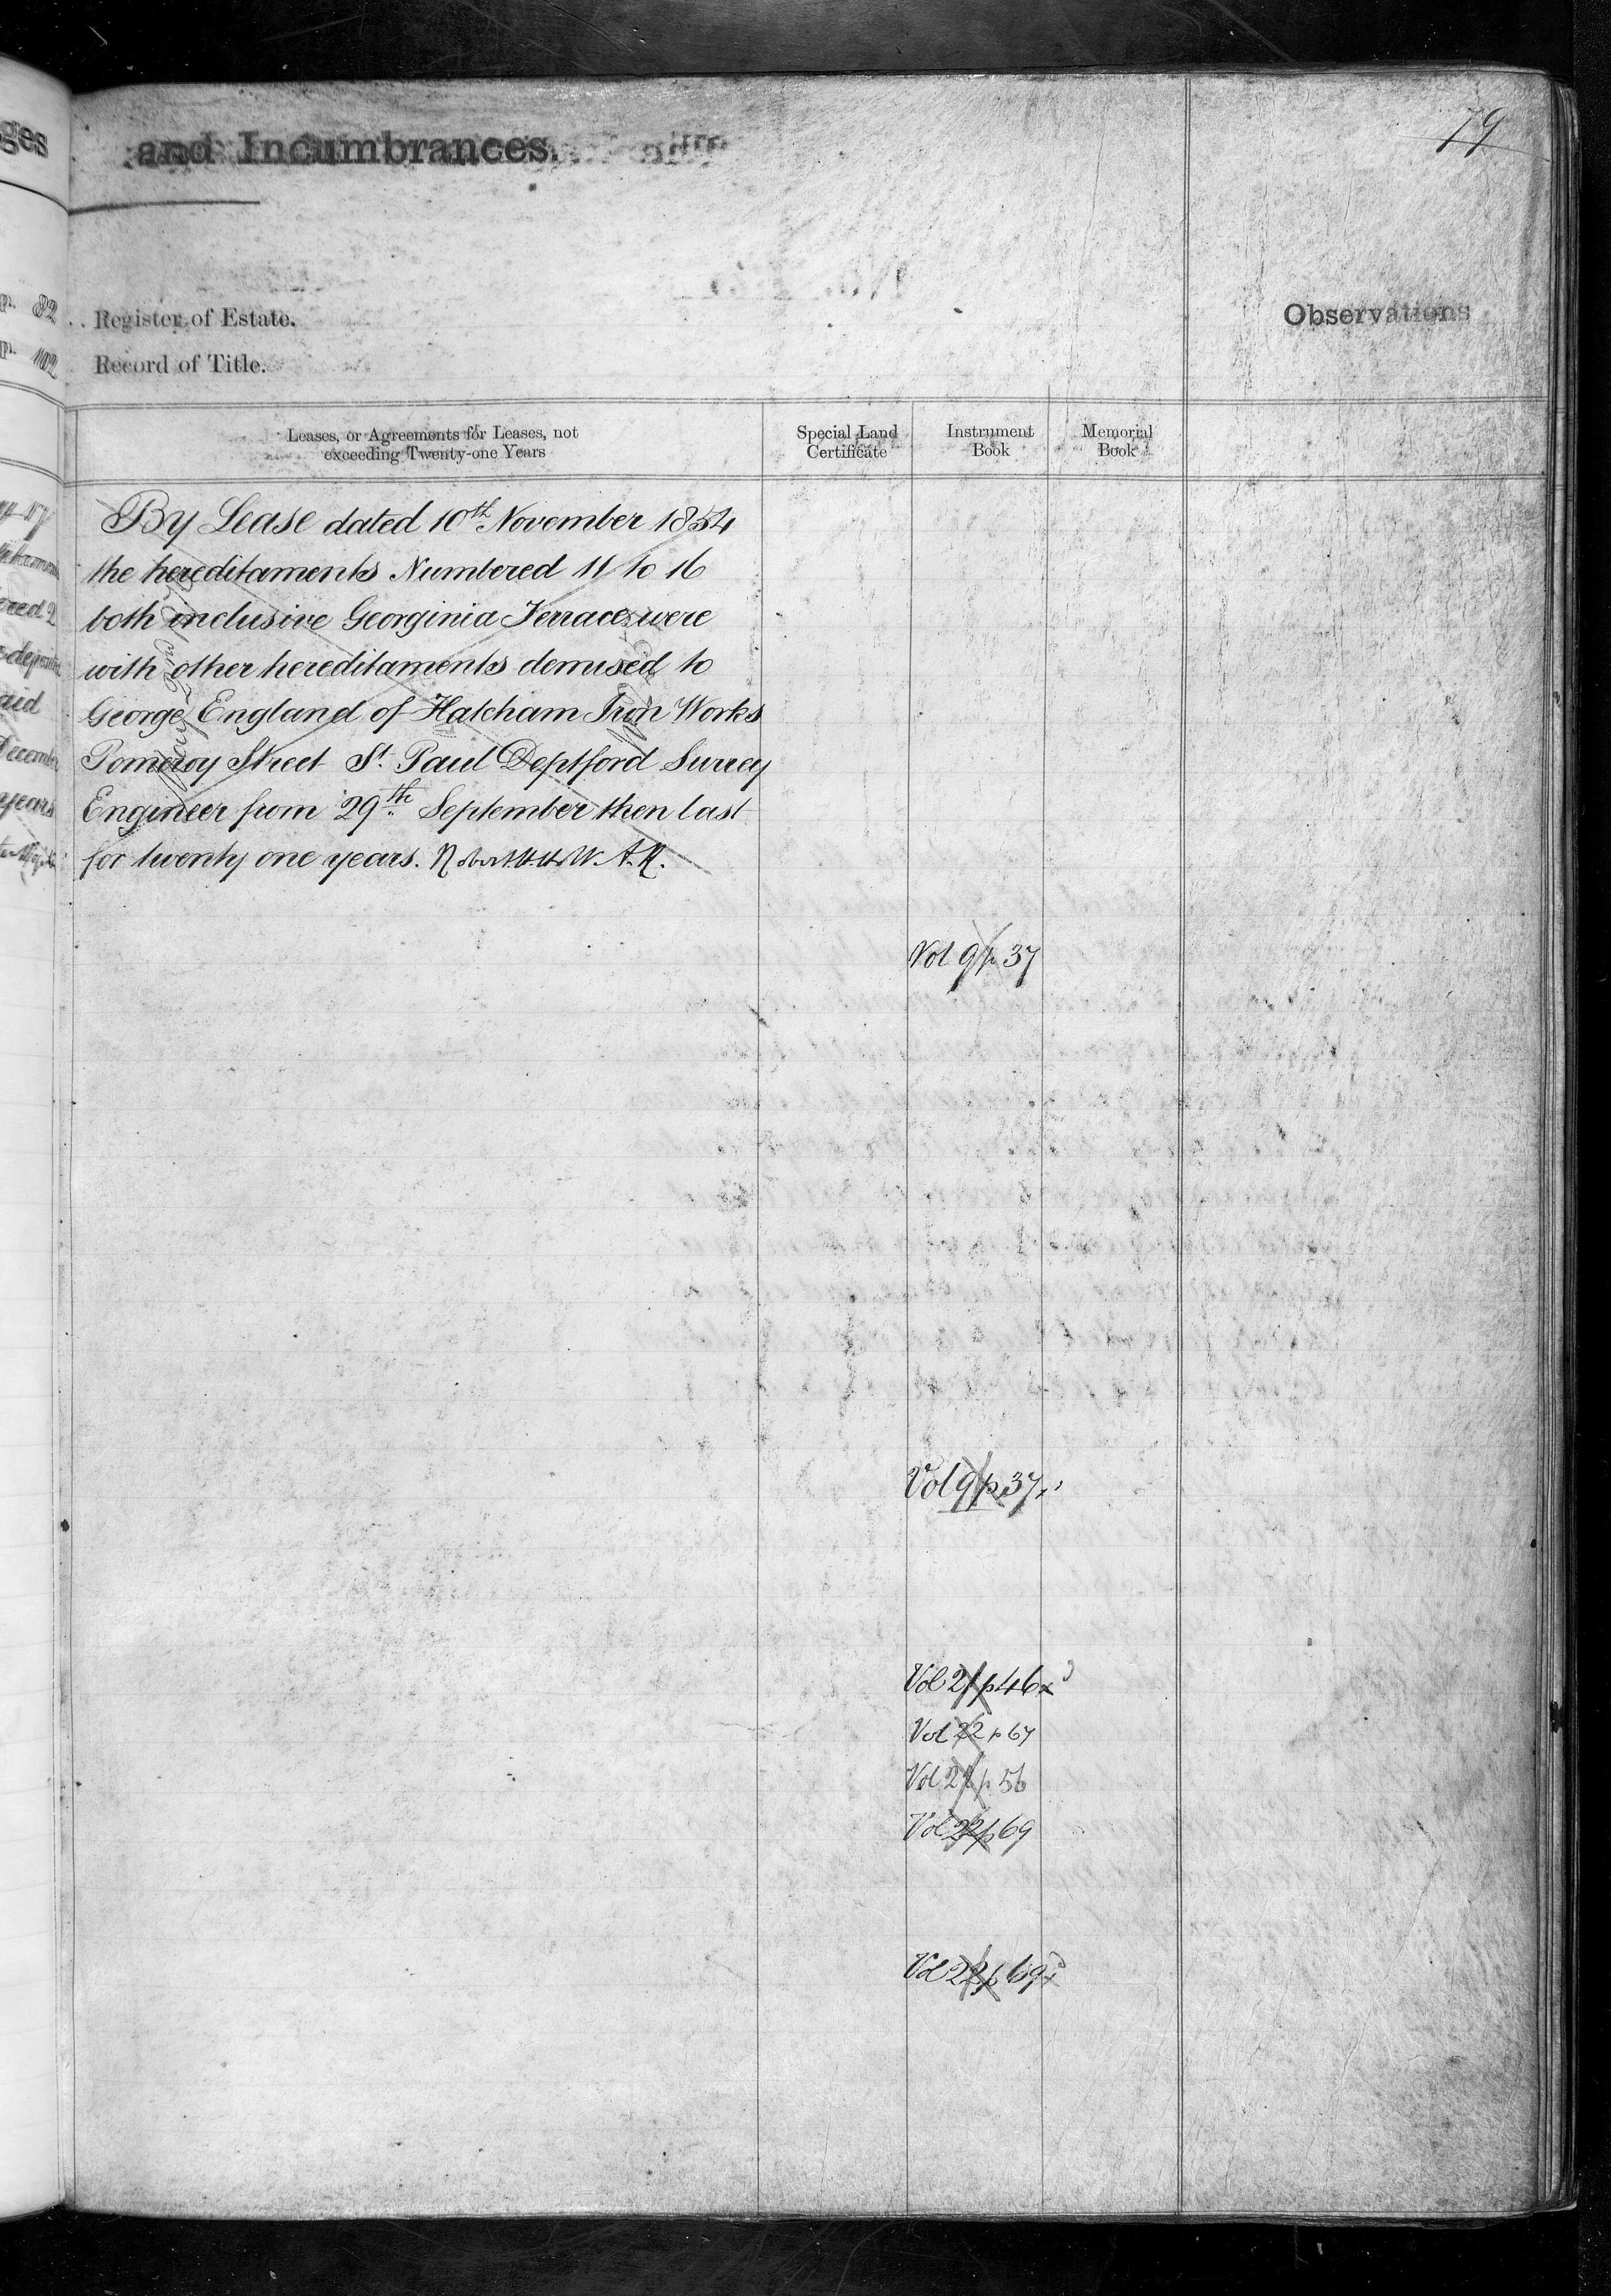 ges
and Incumbrances.
79
p. 82
Register of Estate.
Observations
p. 102
Record of Title.
Leases, or Agreements for Leases, not
exceeding Twenty-one Years
Special Land
Certificate
Instrument
Book
Memorial
Book
By Lease dated 10th November 1854
the hereditaments Numbered 11 to 16
both inclusive Georginia Terrace were
with other hereditaments demised to
George England of Hatcham Iron Works
Pomeroy Street St. Paul Deptford Surrey
Engineer from 29th September then last
for twenty one years.
aid
December
years
Vol 9 p 37
Vol 9 p 37
Vol 21 p 46
Vol 22 p 67
Vol 21 p 56
Vol 22 p 69
Vol 22 p 69